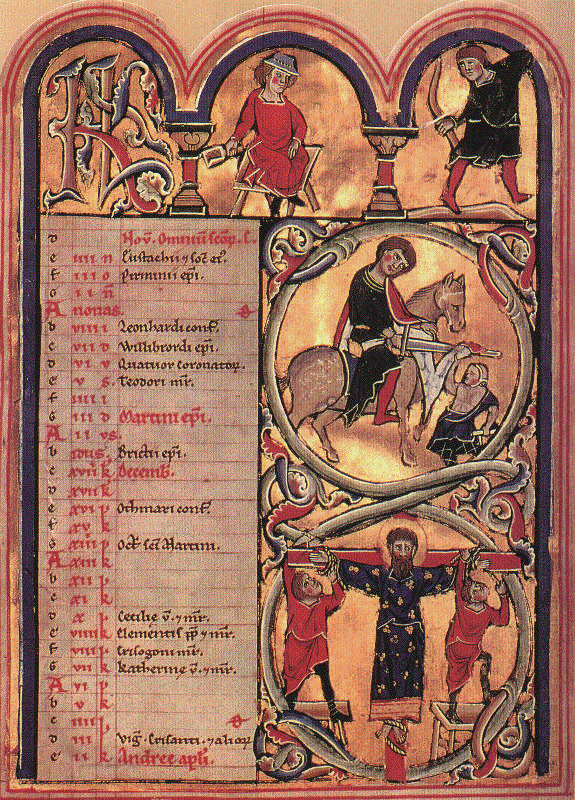 KL
d Nov. Omniū scōꝝ. ƒ.
e iiii n Eustachii ⁊ soc̄ eī.
f iii o Pirminii ep̄i.
G ii n̄
A nonas.
b viii Leonhardi conf.
c vii d Willibrordi ep̄i.
d vi v Quatuor coronatoꝝ.
e v s Teodori mr̄.
f iiii i
G iii d Martini ep̄i.
A ii vs
b idus. Briccii ep̄i.
c xviii k decemb.
d xvii k
e xvi p Othmari conf.
f xv k
G xiiii p Oct̄ sc̄i Martini.
A xiii k
b xii p
c xi k
d x p Cecilie v̄. ⁊ mr̄.
e viiii k Clementis p̄p ⁊ mr̄.
f viii p Crisogoni mr̄.
G vii k Katherine v̄. ⁊ mr̄.
A vi p
b v k
c iiii p
d iii Viḡ. Crisanti. ⁊ alioꝝ
e ii k Andree apl̄i.